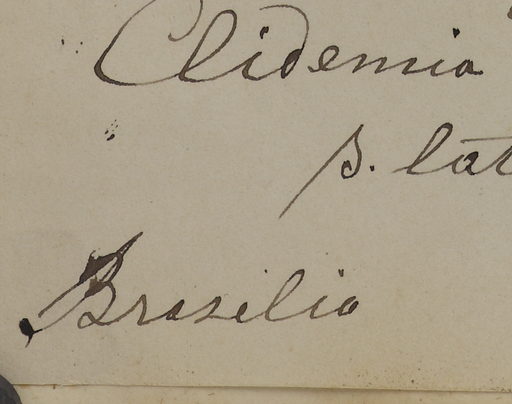 Clidemia
β. lat
Brasilia